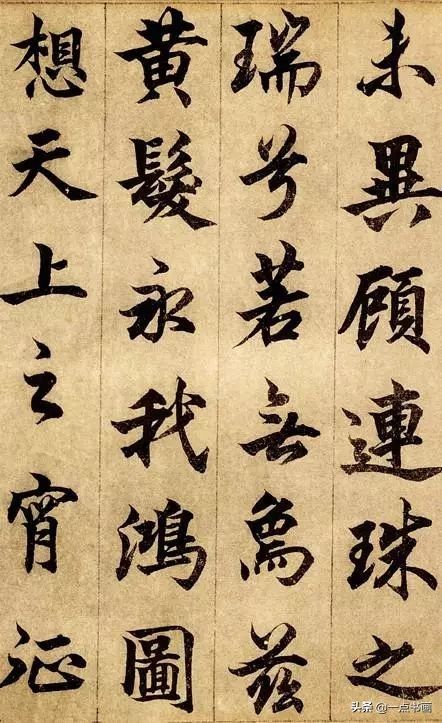 未異顧連珠之
瑞兮若無為茲
黃髮永我鴻圖
想天上之宵征
头条 @一点书画